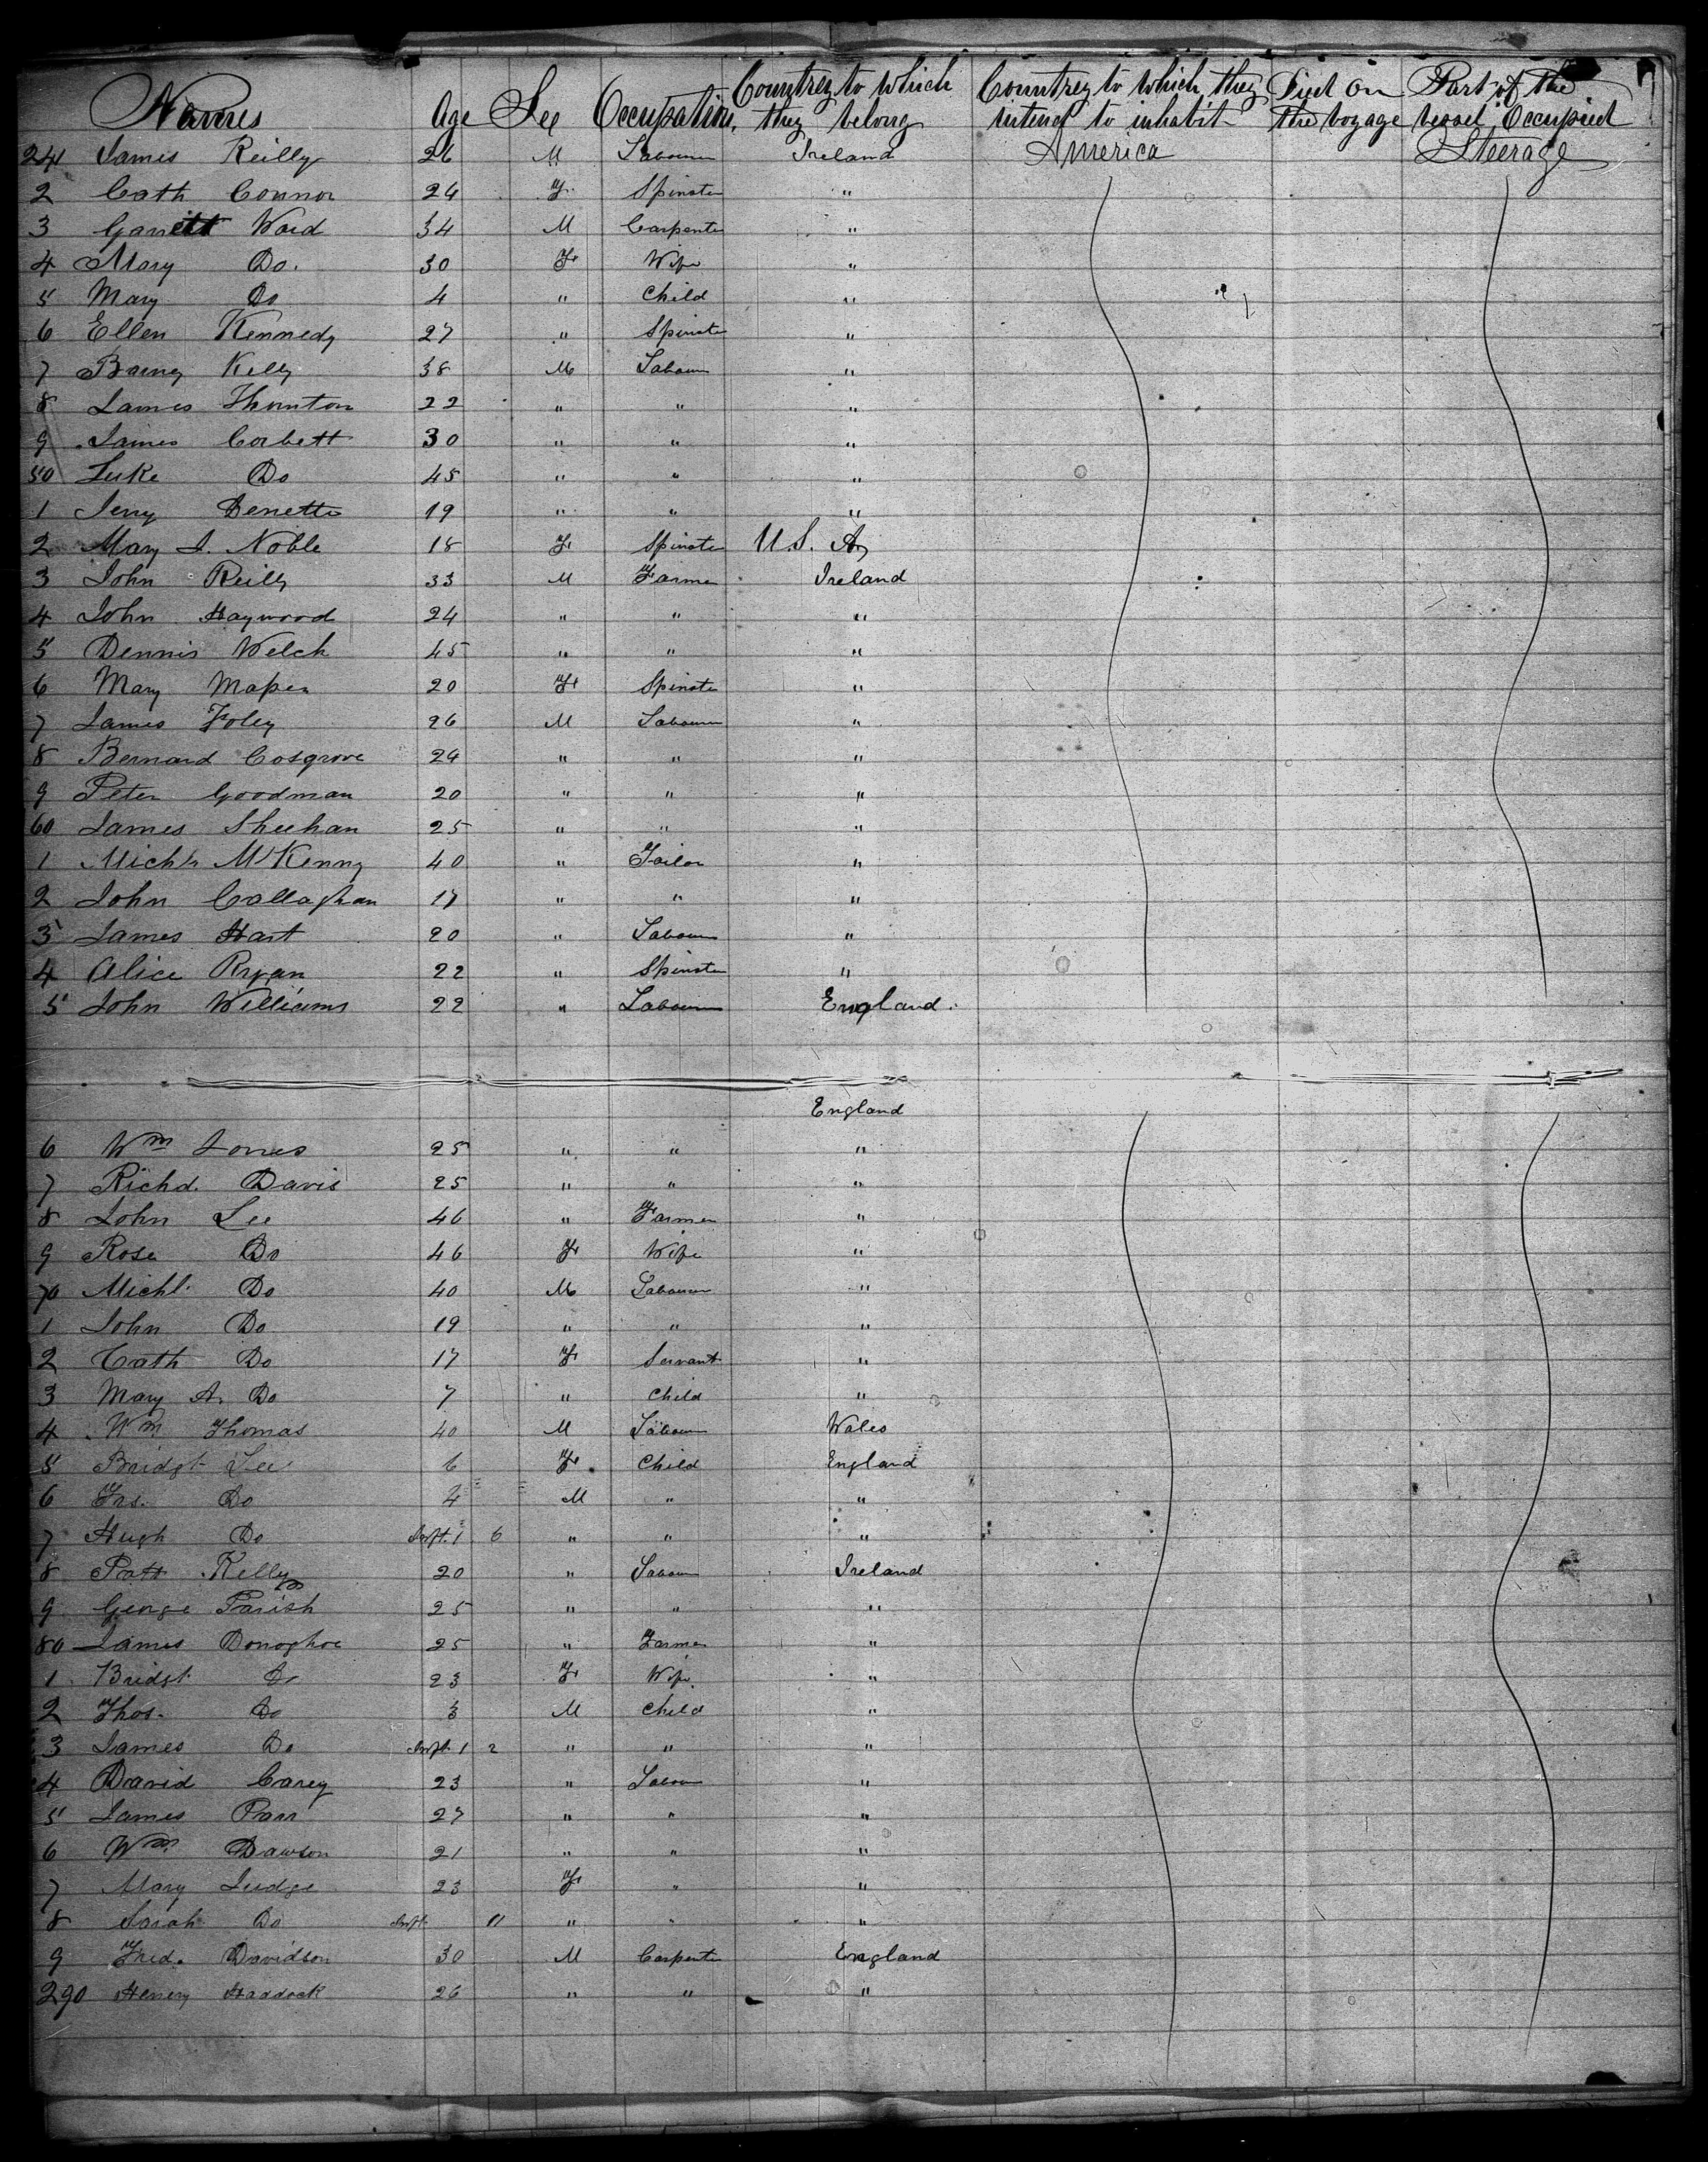 Names Age Sex Occupation. Country to which they belong Country to which they intend to inhabit Died on the voyage Part of the vessel Occupied
241 James Reilly 26 M Labourer Ireland America Steerage
2 Cath Connor 24 F Spinster "
3 Garrett Ward 34 M Carpenter "
4 Mary Do. 30 F Wife "
5 Mary Do 4 " Child "
6 Ellen Kennedy 27 " Spinster "
7 Barney Kelly 38 M Labourer "
8 James Thornton 22 " " "
9 James Corbett 30 " " "
50 Luke Do 45 " " "
1 Jerry 19 " " "
2 Mary J. Noble 18 F Spinster U.S. A
3 John Reilly 33 M Farmer Ireland
4 John Haywood 24 " " "
5 Dennis Welch 45 " " "
6 Mary 20 F Spinster "
7 James Foley 26 M Labourer "
8 Bernard Cosgrove 24 " " "
9 Peter Goodman 20 " " "
60 James Sheehan 25 " " "
1 Michl McKenny 40 " Tailor "
2 John Callaghan 17 " " "
3 James Hart 20 " Labourer "
4 Alice Ryan 22 " Spinster "
5 John Williams 22 " Labourer England
England
6 Wm Jones 25 " " "
7 Richd. Davis 25 " " "
8 John Lee 46 " Farmer "
9 Rose Do 46 F Wife "
70 Michl. Do 40 M Labourer "
1 John Do 19 " " "
2 Cath Do 17 F Servant "
3 Mary A. Do 7 " Child "
4 Wm Thomas 40 M Labourer Wales
5 Bridgt Lee 6 F Child England
6 Do 4 M " "
7 Hugh Do Inft. 1 6 " " "
8 Patt Kelly 20 " Labour Ireland
9 George Parish 25 " " "
80 James Donoghoe 25 " Farmer "
1 Bridgt Do 23 F Wife "
2 Thos. Do 3 M Child "
3 James Do Inft. 1 2 " " "
4 David Carey 23 " Labour "
5 James Parr 27 " " "
6 Wm Dawson 21 " " "
7 Mary Judge 23 F " "
8 Sarah Do Inft. 11 " " "
9 Fred. Davidson 30 M Carpenter England
290 Henry Haddock 26 " " "